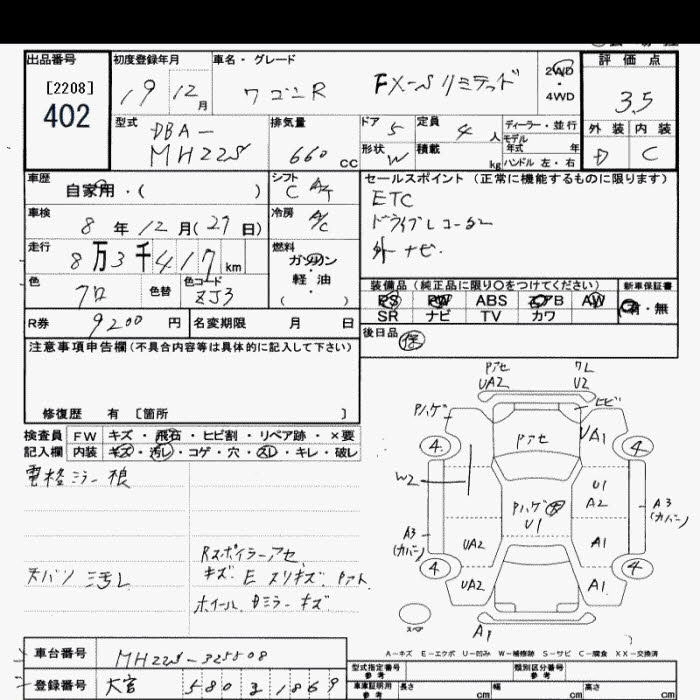 出品番号 初度登録年月 車名・グレード 評価点
[2208]
402
19 12月 ワゴンR FX-Sリミテッド 2WD・4WD 3.5
型式 DBA-
MH22S
排気量 660 CC
ドア 5 定員 4人 ディーラー・並行
形状 W 積載 kg モデル年式 年
ハンドル 左・右
外装 内装
D C
車歴 自家用・( )
シフト C A/T
セールスポイント(正常に機能するものに限ります)
車検 8年12月(29日)
冷房 A/C
ETC
ドライブレコーダー
外ナビ.
走行 8万3千417km
燃料 ガソリン・軽油・( )
色 クロ 色替 色コード ZJ3
装備品(純正品に限り○をつけてください) 新車保証書
PS PW ABS エアB AW 有・無
SR ナビ TV カワ
R券 9200円 名変期限 月 日
後日品 保
注意事項申告欄(不具合内容等は具体的に記入して下さい)
修復歴 有 [箇所 ]
検査員 FW キズ・飛石・ヒビ割・リペア跡・×要
記入欄 内装 キズ・汚レ・コゲ・穴・スレ・キレ・破レ
電格ミラー
天バリ 汚レ
Rスポイラーアセ
キズ E スリキズ
ホイール ミラー キズ
Pアセ UA2 ワレ U2
Pハゲ ヒビ
4 Pアセ UA1 4
W2 U1
A2
Pハゲ
U1
A3
(カバー)
A3
(カバー)
UA2 A1
4 UA2 A1 4
スペア A1
A-キズ E-エクボ U-凹み W-補修跡 S-サビ C-腐食 XX-交換済
車台番号 MH22S-325508
型式指定番号 参考 類別区分番号 参考
登録番号 大宮 580 1869
車庫証明用 参考 長さ cm 幅 cm 高さ cm